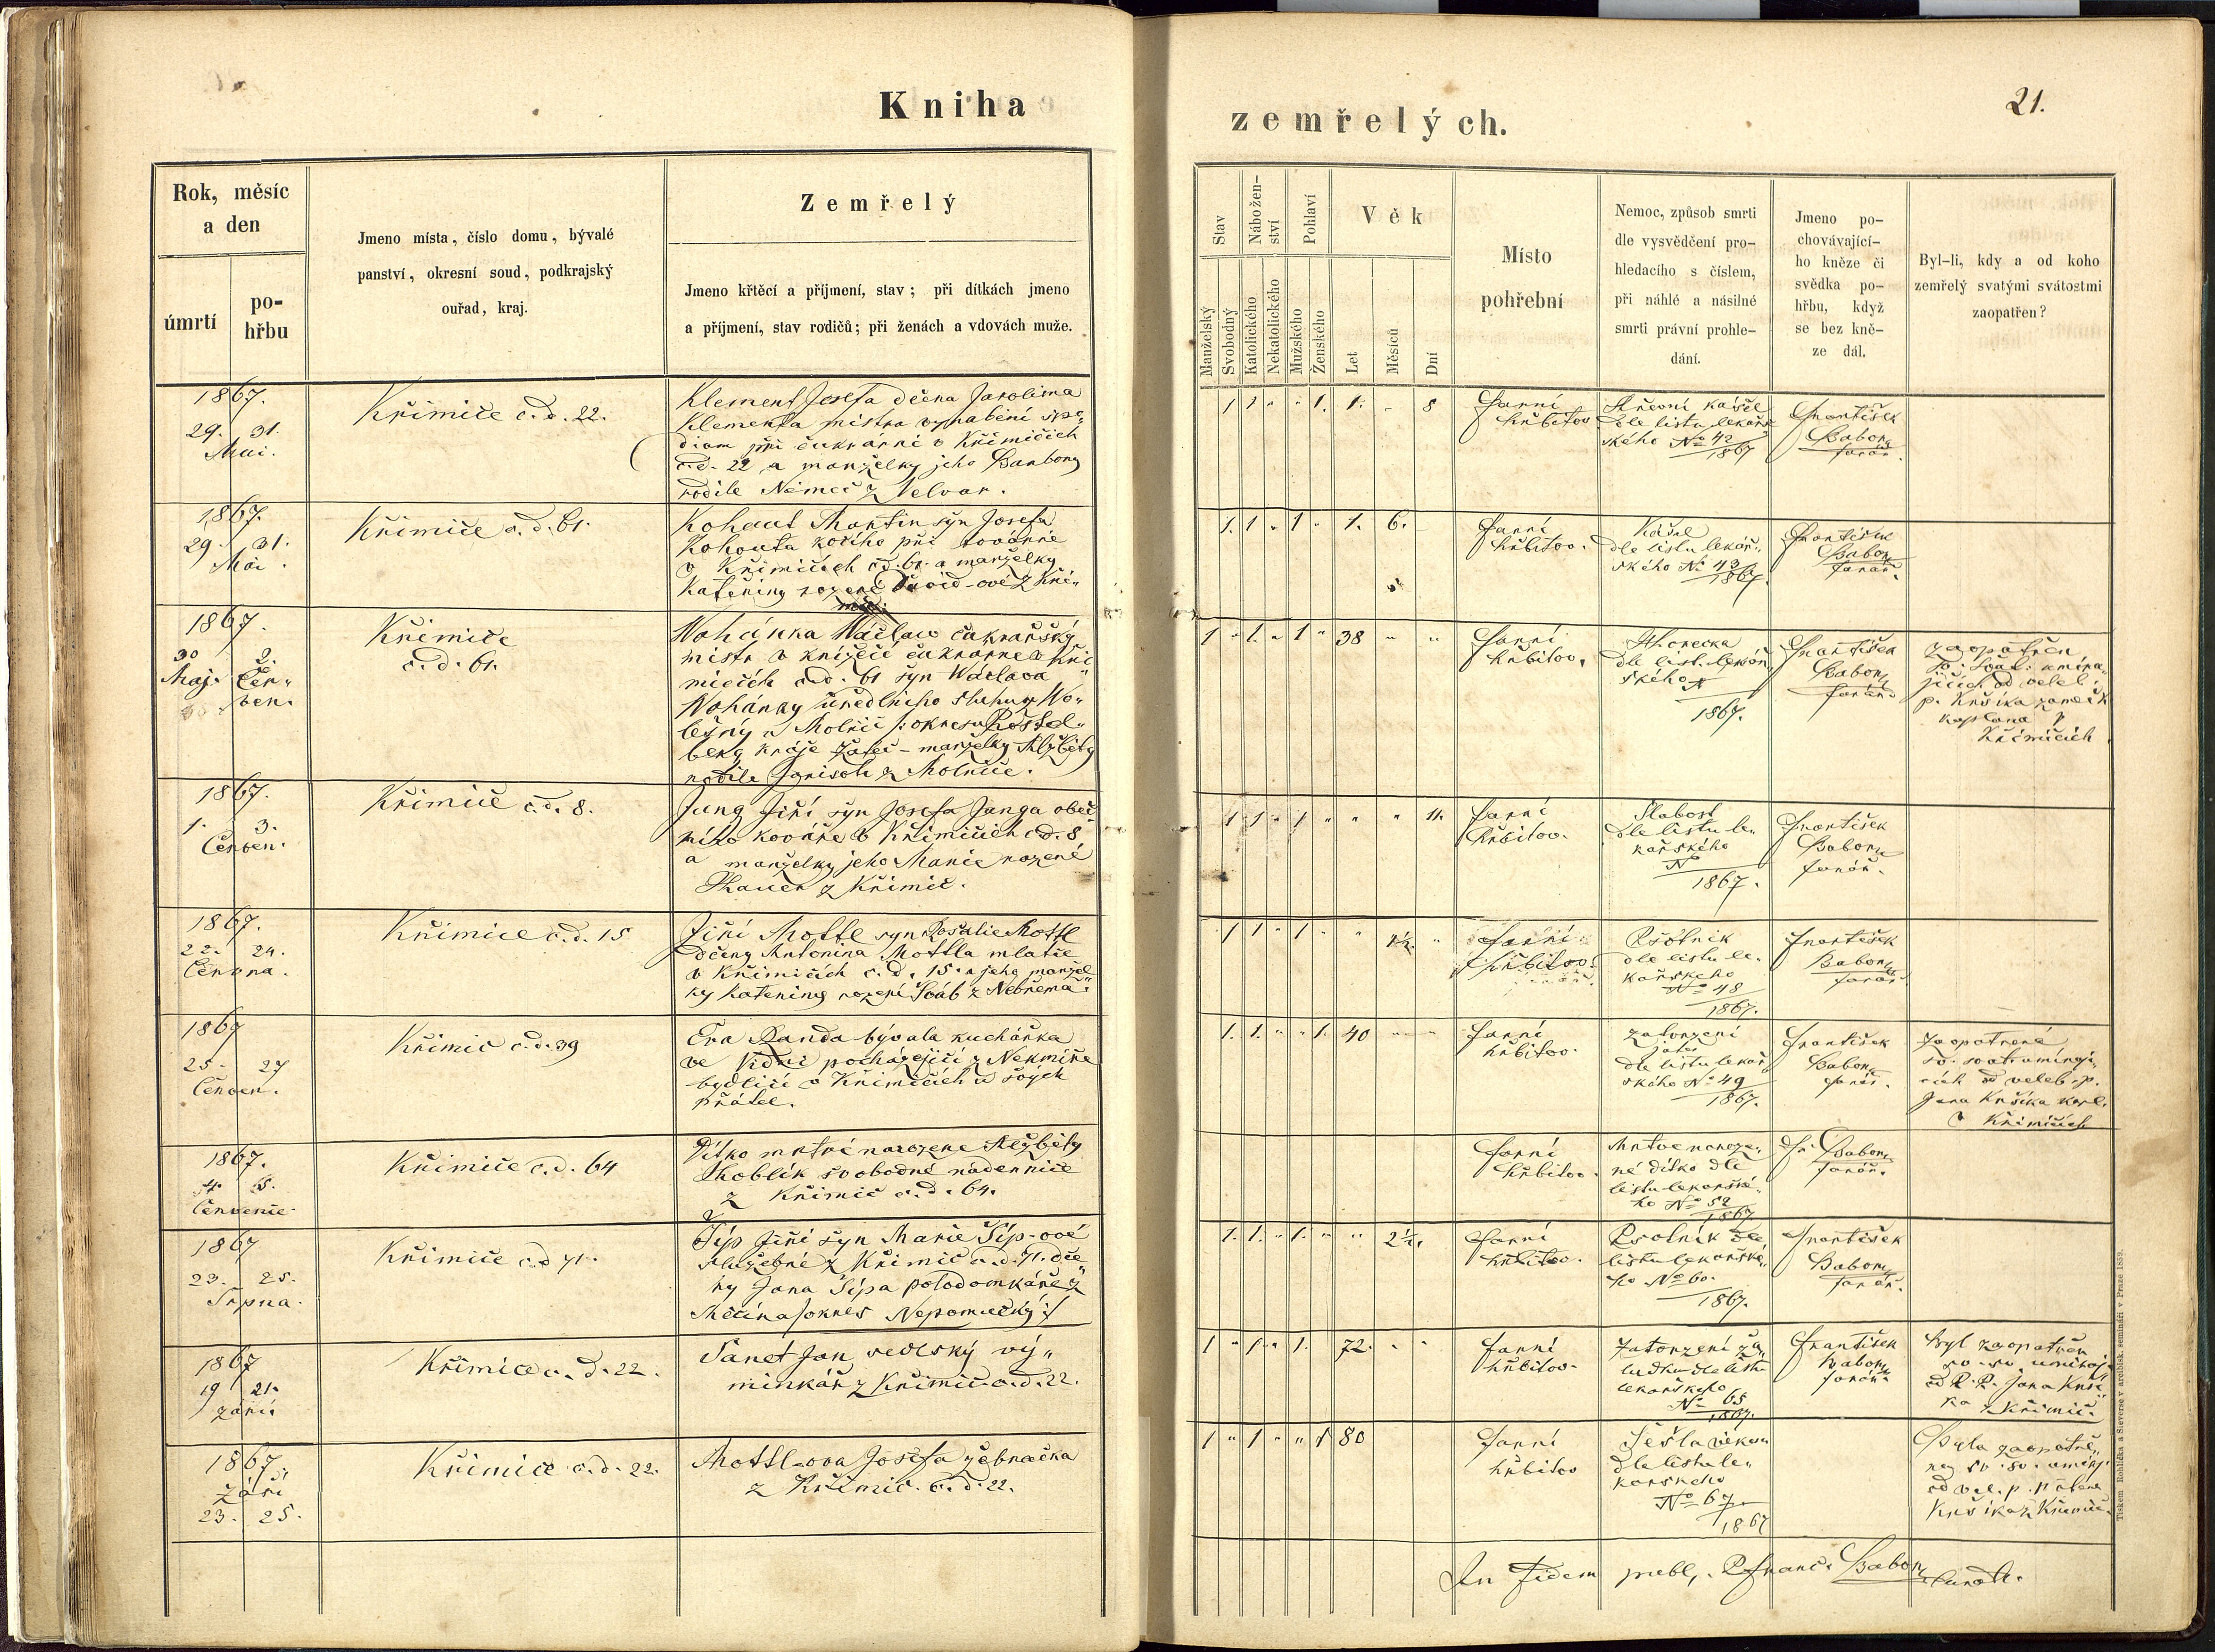 Kniha
zemřelých.
21.
Rok, měsíc
a den
úmrtí
po-
hřbu
Jmeno místa, číslo domu, bývalé
panství, okresní soud, podkrajský
ouřad, kraj.
Zemřelý
Jmeno křtěcí a příjmení, stav; při dítkách jmeno
a příjmení, stav rodičů; při ženách a vdovách muže.
Stav
Nábožen-
ství
Pohlaví
Věk
Manželský
Svobodný
Katolického
Nekatolického
Mužského
Ženského
Let
Měsíců
Dní
Místo
pohřební
Nemoc, způsob smrti
dle vysvědčení pro-
hledacího s číslem,
při náhlé a násilné
smrti právní prohle-
dání.
Jmeno po-
chovávající-
ho kněze či
svědka po-
hřbu, když
se bez kně-
ze dál.
Byl-li, kdy a od koho
zemřelý svatými svátostmi
zaopatřen?
1867.
29. 31.
Mai.
Křimiče c.d. 22.
Klement Josefa dcera Jarolima
Klementa mistra
při cukrarni v Křimičích
c.d. 22 a manželky jeho Barbory
rodile Němeč z Velvar.
1 1 " " 1. 1. " 8
farní
hřbitov
kašel
dle listu lekař
ského No 42
1867
František
Babor
farář.
1867.
29. 31.
Mai.
Křimiče c.d. 61.
Kohout Martin syn Josefa
Kohouta kočího při továrně
v Křimičích čd. 61. a manželky
Kateřiny rozené David-ové z Kři"
1. 1 " 1 " 1. 6.
farní
hřbitov.
Kašel
dle listu lekař"
ského No 43
1867.
František
Babor
farář.
1867.
30 2.
Maj. Čer"
ven.
Křimiče
c.d. 61.
Wohánka Wáclaw cukrařský
mistr v knížecí cukrarně v Kři
mičích c.d. 61 syn Wáclava
Wohánky úředlního sluhy z Wo"
lešny a
kraje Žateč - manželky Alžběty
rodile
1 " 1. " 1 " 38 " "
farní
hřbitov.
Horečka
dle list. lekař
ského
N
1867.
František
Babor
farář.
zaopatřen
sv. svat. umíra
jicích od veleb.
p. Kršika zameck
kaplana v
Křimičích
1867.
1. 3.
Červen.
Křimiče c.d. 8.
Jung Jiří syn Josefa Junga obec
niho kováře v Křimičích c.d. 8
a manželky jeho Marie rozené
z Křimič.
1 1 " 1 " " " 11.
farní
hřbitov.
Slabost
dle listu le"
kařského
N
1867.
František
Babor
farář.
1867.
22. 24.
Června.
Křimice c.d. 15
Jiří Mottl syn Rosalie Mottl
dcery Antonina Mottla mlatče
v Křimičích c.d. 15. a jeho manžel
ky Kateřiny rozené Šváb z Nebřema.
1 1 " 1 " " 1½ "
farní
hřbitov.
Psotník
dle listu le"
kařského
No 48
1867.
František
Babor
farář
1867
25. 27
Červen.
Křimič c.d. 39
Eva Randa bývala kuchařka
ve Vídni pocházející z Nekmiře
bydlící v Křimičích u svých
přátel.
1. 1. " " 1. 40 " "
farní
hřbitov.
zatvrzení
jater
dle listu lekař
ského No 49
1867.
František
Babor
farář.
Zaopatřená
od veleb. p.
Jana Kršika kapl.
v Křimičích
1867.
4. 5.
Července.
Křimiče c.d. 64
Dítko mrtvě narozene Alžběty
Koblik svobodné nadennice
z Křimič c.d. 64.
farní
hřbitov.
Mrtve naroze"
né dítko dle
listu lekařské"
ho No 52
1867
Fr. Babor
farář.
1867
23. 25.
Srpna.
Křimiče c.d 71.
Šíp Jiří syn Marie Šíp-ové
služebné z Křimič c.d. 71. dce
ry Jana Šípa polodomkáře z
Měčína/okres Nepomucký:/
1. 1. " 1. " " 2½.
farní
hřbitov.
Psotník dle
listu lekařské"
ho No 60.
1867.
František
Babor
farář.
1867
19 21.
září.
Křimice c.d. 22.
Šanet Jan selský vý"
minkář z Křimič c.d. 22.
1 " 1. " 1. 72. " "
farní
hřbitov.
Zatvrzení ža"
ludku dle listu
lekařského
No 65
1867.
František
Babor
farář.
Byl zaopatřen
sv. sv. umiraj
od P. P. Jana Krši
ka z Křimič.
1867.
Září
23. 25.
Křimice c.d. 22.
Mottl-ova Josefa žebračka
z Křimič. č.d. 22.
1 " 1 " " 1 80
farní
hřbitov
Sešla věkem
dle listu le"
karskeho
No 67
1867
Byla zaopatře"
na sv. sv. umiraj.
od vel. p.
Kršika z Křimič.
In fidem publ. P. Franc. Babor
Tiskem Rohlíčka a Sieverse v arcibisk. semináři v Praze 1859.